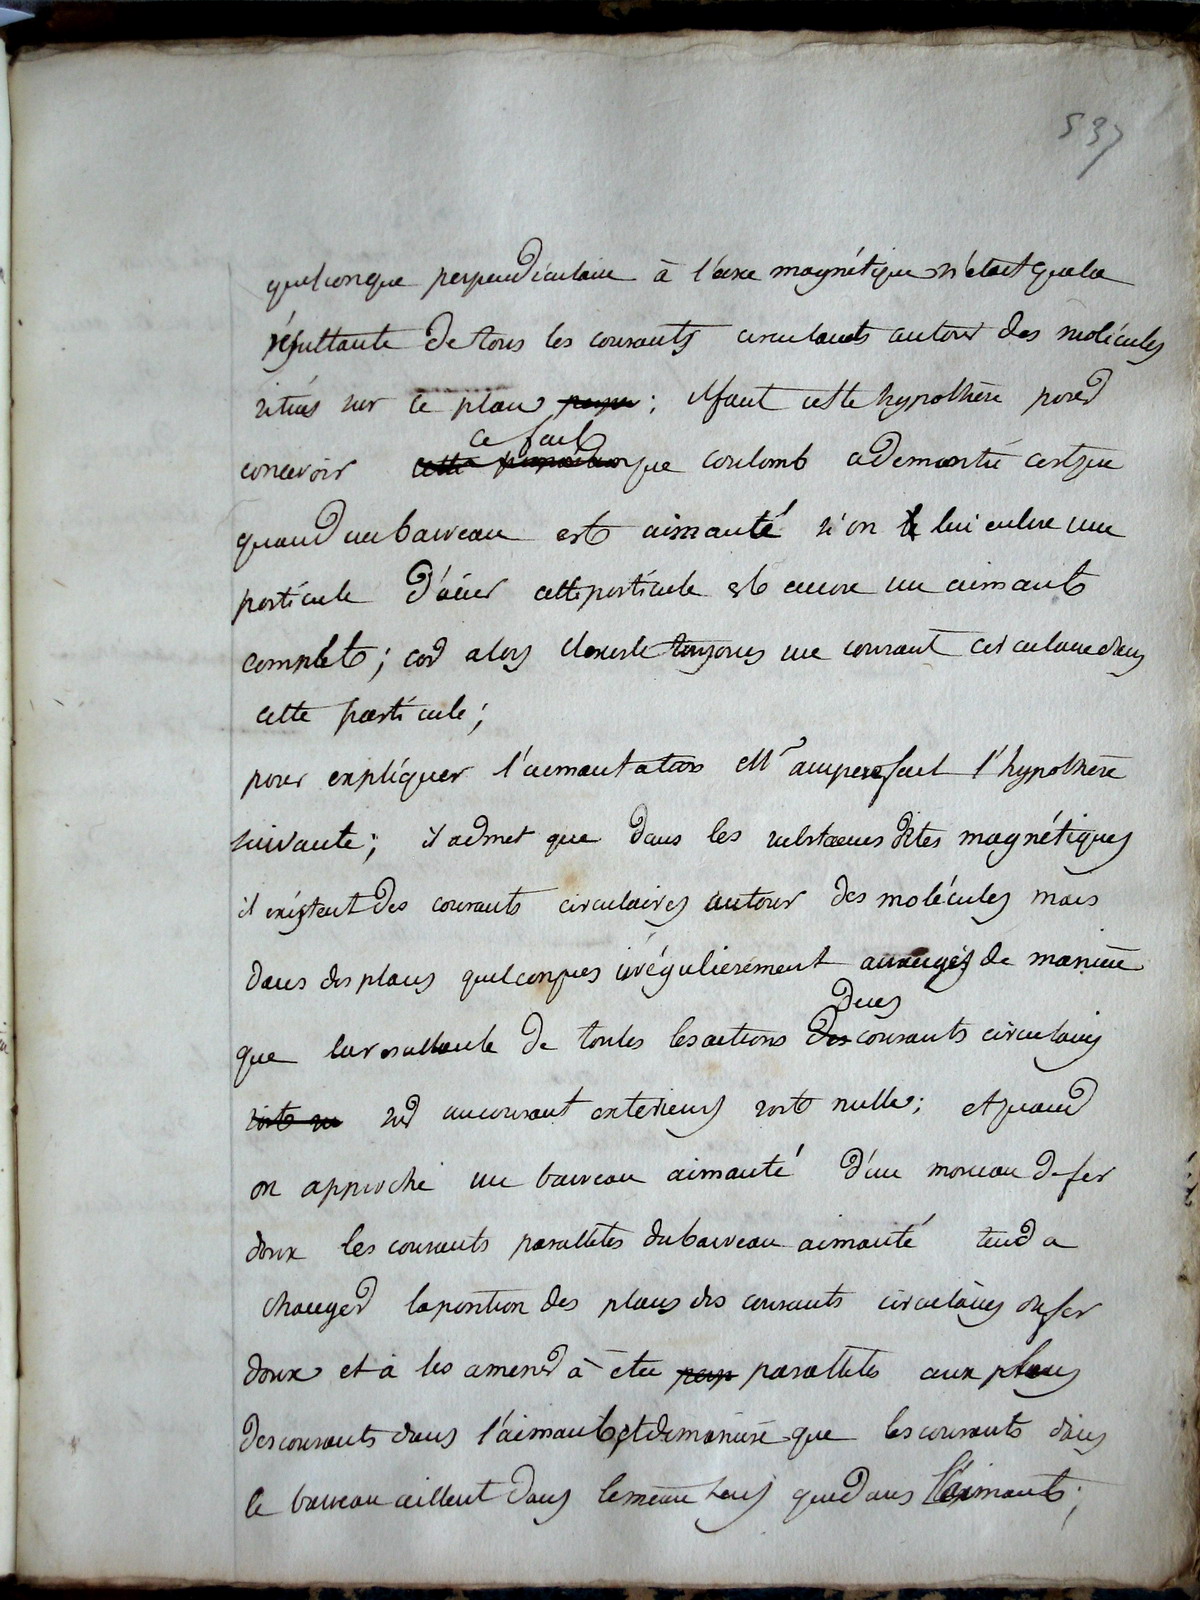 537
quelconque perpendiculaire à l'axe magnétique n'était que la
résultante de tous les courants circulants autour des molécules
situés sur ce plan ; il faut cette hypothèse pour
ce fait
concevoir cette proposition que coulomb a demontré c'est que
quand un barreau est aimanté si on lui enleve une
particule d'acier cette particule est encore un aimant
complet ; car alors il existe toujours un courant circulaire dans
cette particule ;
pour expliquer l'aimantation Mr ampere fait l'hypothèse
suivante ; il admet que dans les substances dites magnétiques
il existent des courants circulaires autour des molécules mais
dans des plans quelconques irrégulierement arrangés de maniere
que la resultante de toutes les actions des courants circulaires
sur un courant exterieur soit nulle ; et quand
on approche un barreau aimanté d'un morceau de fer
doux les courants paralleles du barreau aimanté tend a
changer la position des plans des courants circulaires du fer
doux et à les amener à être parp paralleles aux plans
des courants dans l'aimant, et de maniere que les courants dans
le barreau aillent dans le meme sens que dans l'aimant ;